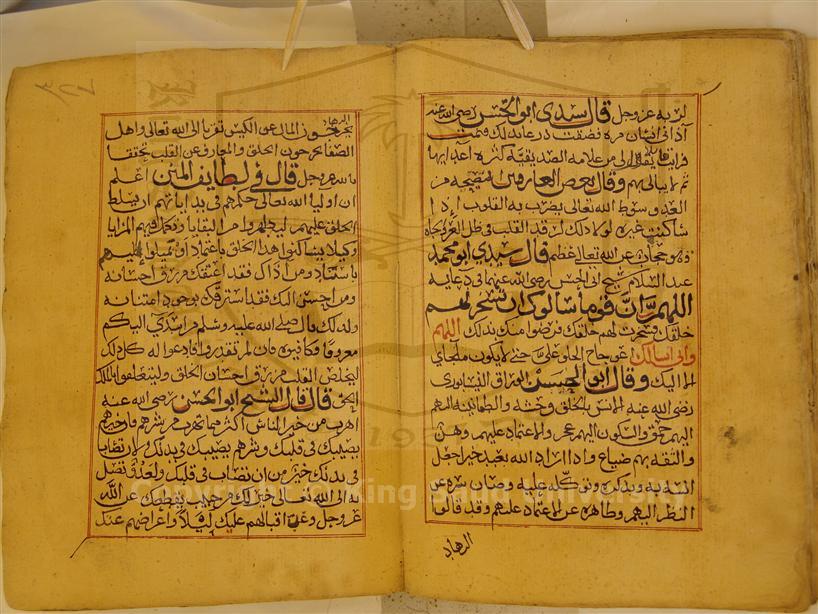 لربه عز وجل قال سيدي ابو الحسن رضي الله عنه
آذاني انسان مره فضقت ذرعا بذلك فنمت
فرايت يقال لي من علامه الصديقيه كثره اعدايها
ثم لا يبالي بهم وقال بعض العارفين صيحه من
العدو سوط الله تعالى يضرب به القلوب اذا
ساكنت غيره ولولا ذلك لرقد القلب في ظل العز والجاه
وهو حجاب عن الله تعالى عظيم قال سيدي ابو محمد
عبد السلام شيخ ابي الحسن رضي الله عنهما في دعايه
اللهم ان قوما سالوك ان تسخر لهم
خلقك فسخرت لهم خلقك فرضوا منك بذلك اللهم
واني اسالك اعوجاج الخلق علي حتى لا يكون ملجاي
الا اليك وقال ابو الحسن الوراق النيسابوري
رضي الله عنه الانس بالخلق وحشه والطمانينه اليهم
حمق والسكون اليهم عجز والاعتماد عليهم وهن
والثقه بهم ضياع واذا اراد الله بعبد خيرا جعل
انسه به وبذكره وتوكله عليه وصان سره عن
النظر اليهم وظاهره عن الاعتماد عليهم وقد قالوا
الزهاد
الزهاد
يخرجون المال عن الكيس تقربا الى الله تعالى واهل
الصفا يخرجون الخلق والمعارف عن القلب تحققا
بالله عز وجل قال في لطايف المنن اعلم
ان اوليا الله تعالى حكمهم في بداياتهم ان يسلط
الخلق عليهم ليطهروا من البقايا وتكمل فيهم المزايا
وكيلا يساكنوا هذا الخلق باعتماد او تميلوا اليهم
باستناد ومن اذاك فقد اعتقك من رق احسانه
ومن احسن اليك فقد استرقك بوجود امتنانه
ولذلك قال صلى الله عليه وسلم من اسدى اليكم
معروفا فكافئوه فان لم تقدروا فادعوا له كل ذلك
ليخلص القلب من رق احسان الخلق وليتعلق بالملك
الحق قال قال الشيخ ابو الحسن رضي الله عنه
اهرب من خير الناس اكثر مما تهرب من شرهم فان خيرهم
يصيبك في قلبك وشرهم يصيبك في بدنك ولان تصاب
في بدنك خير من ان تصاب في قلبك ولعدو تصل
به الى الله تعالى خير لك من حبيب يقطعك عن الله
عز وجل وعد اقبالهم عليك ليلا واعراضهم عنك
Copyright © King Saud University
1957